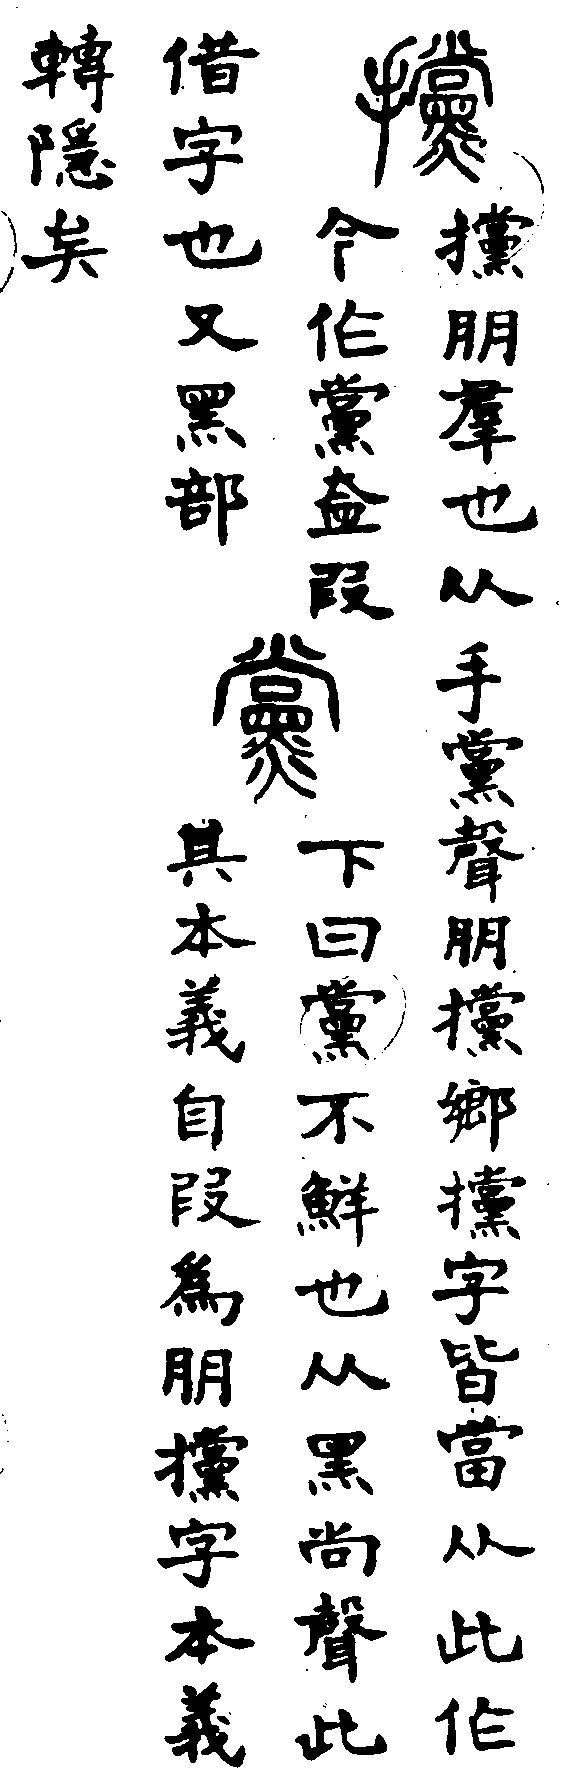 攩
攩朋羣也从手黨聲朋攩鄉攩字皆當从此作
今作黨盇叚
借字也又黑部
黨
下曰黨不鮮也从黑尚聲此
其本義自叚爲朋攩字本義
轉隱矣